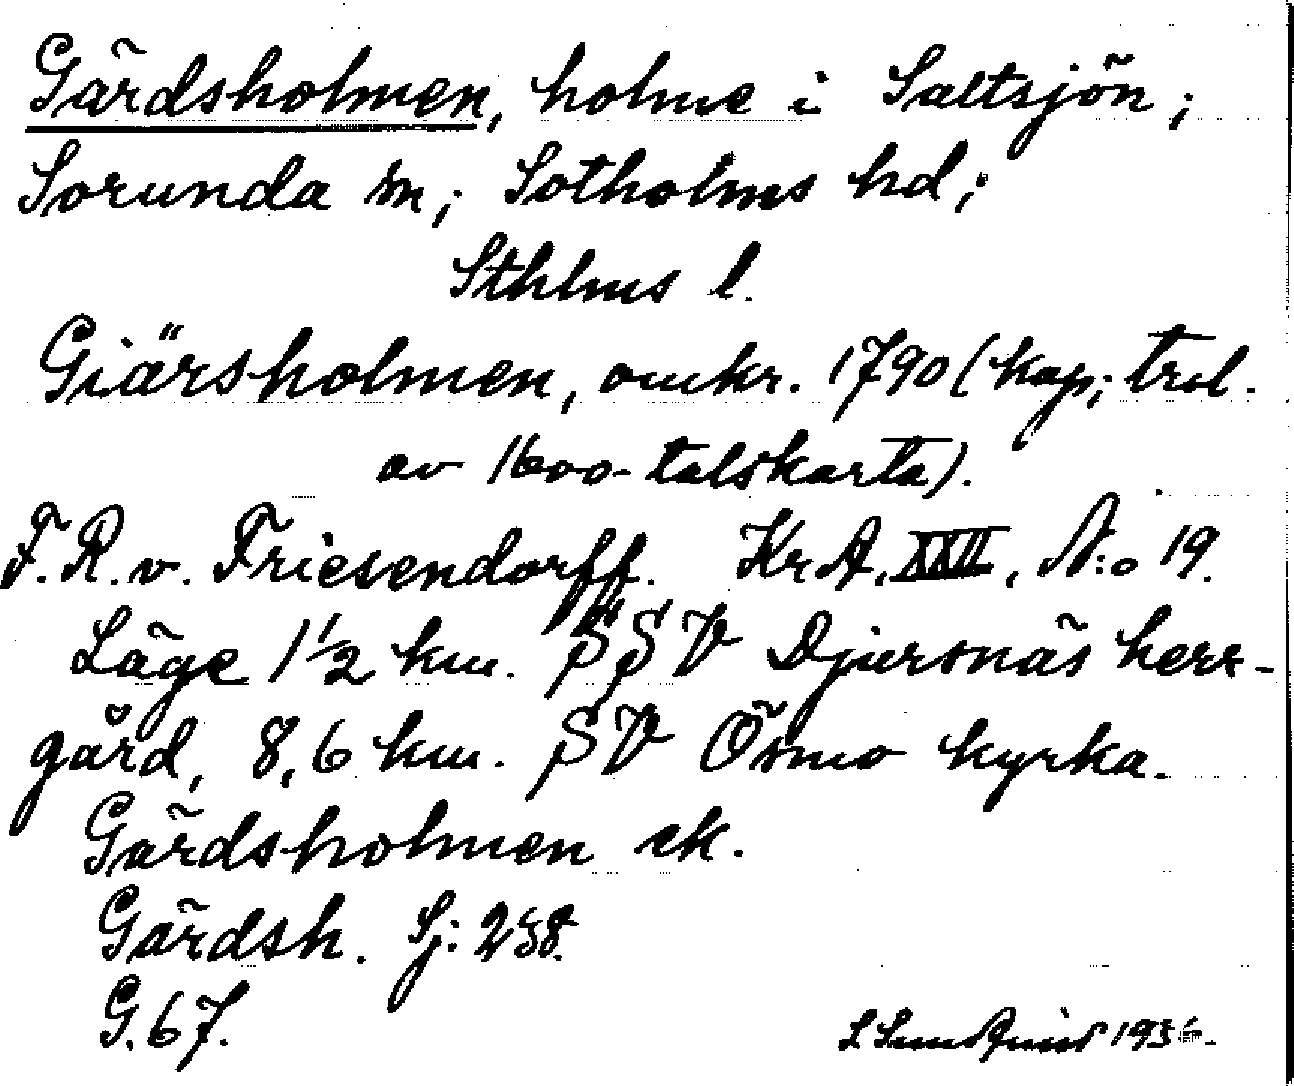 Gärdsholmen, holme i Saltsjön;
Sorunda sn; Sotholms hd;
Sthlms l.
Giärsholmen, omkr. 1790 (kap; trol.
av 1600-talskarta).
F.R.v. Friesendorff. KrA, XXII, N:o 19.
Läge 1½ km. SSV Djursnäs herr-
gård, 8,6 km. SV Ösmo kyrka.
Gärdsholmen ek.
Gärdsh. Sj: 238.
G.67.